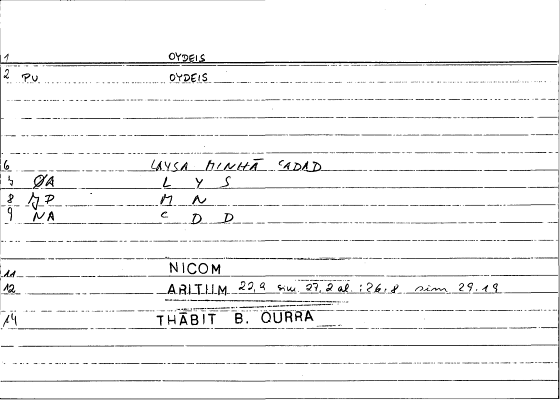 1 OYDEIS
2 PU OYDEIS
6 LAYSA MINHĀ CADAD
5 ØA L Y S
8 MP M N
9 NA C D D
11 NICOM
12 ARITHM 22,9 sim 27,2 al. :26,8 sim 29.19
14 THĀBIT B. QURRA